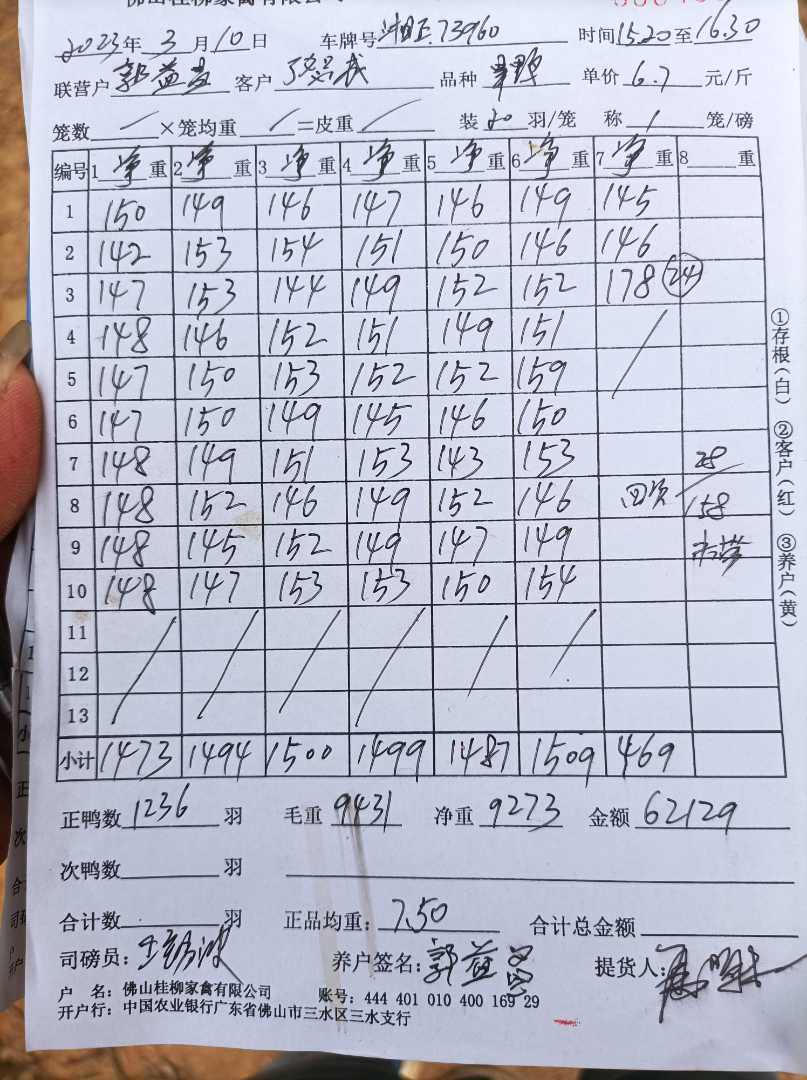 佛山桂柳家禽有限公司
2023年3月10日 车牌号 73960 时间15.20至16.30
联营户 郭益 客户 品种 单价 6.7 元/斤
笼数 / ×笼均重 / =皮重 / 装 20 羽/笼 称 1 笼/磅
编号 1 净 重 2 净 重 3 净 重 4 净 重 5 净 重 6 净 重 7 净 重 8 重
1 150 149 146 147 146 149 145
2 142 153 154 151 150 146 146
3 147 153 144 149 152 152 178 (24)
4 148 146 152 151 149 151 /
5 147 150 153 152 152 159
6 147 150 149 145 146 150
7 148 149 151 153 143 153 28
8 148 152 146 149 152 146 158
9 148 145 152 149 147 149
10 148 147 153 153 150 154
11 / / / / / /
12
13
小计 1473 1494 1500 1499 1487 1509 469
正鸭数 1236 羽 毛重 9431 净重 9273 金额 62129
次鸭数 羽
合计数 羽 正品均重: 7.50 合计总金额
司磅员: 养户签名: 郭益 提货人:
户 名: 佛山桂柳家禽有限公司 账号: 444 401 010 400 169 29
开户行: 中国农业银行广东省佛山市三水区三水支行
①存根(白) ②客户(红) ③养户(黄)